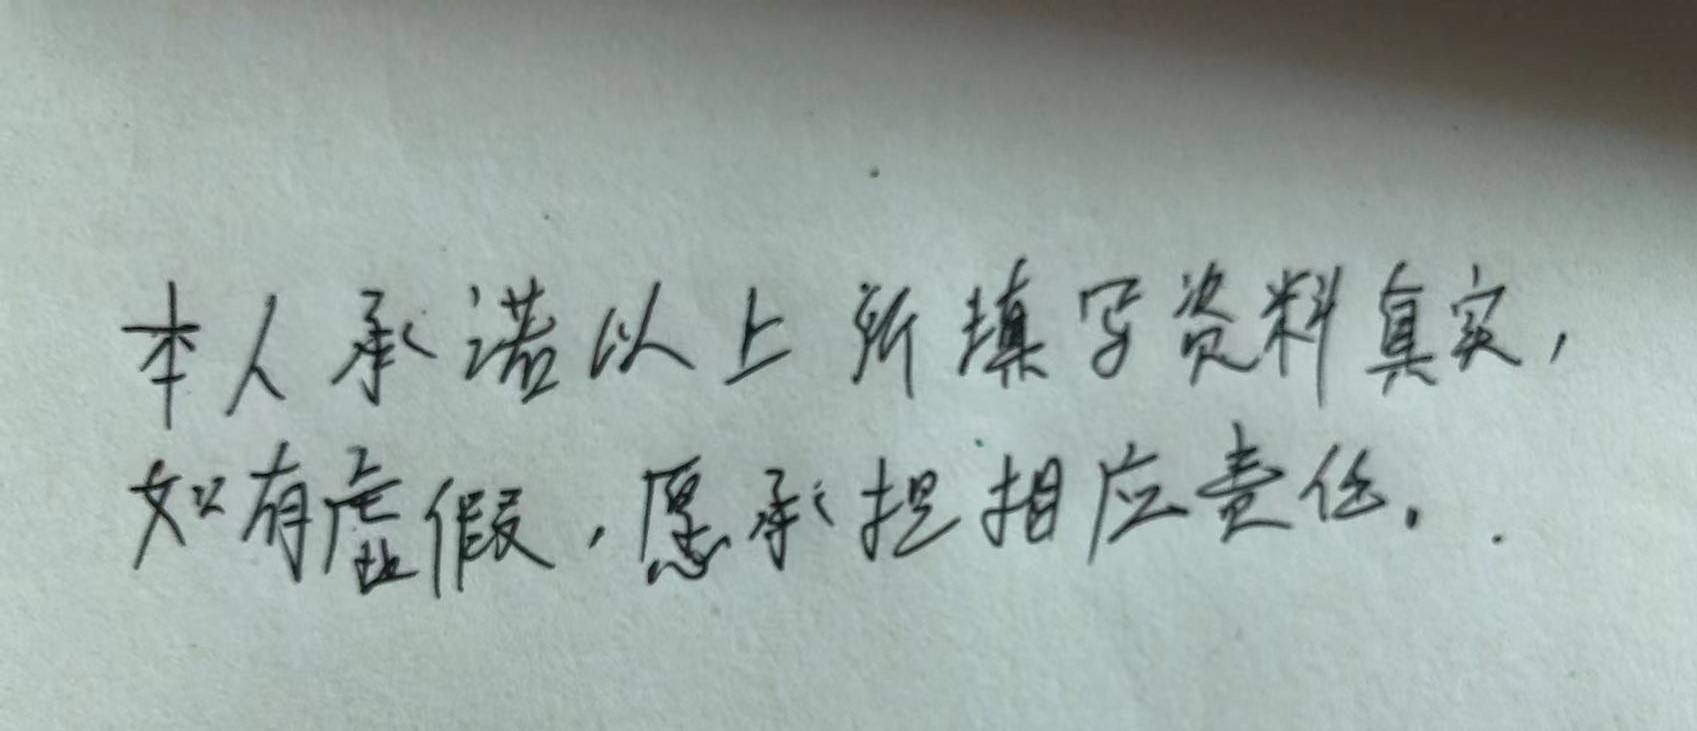 本人承诺以上所填写资料真实,
如有虚假,愿承担相应责任.